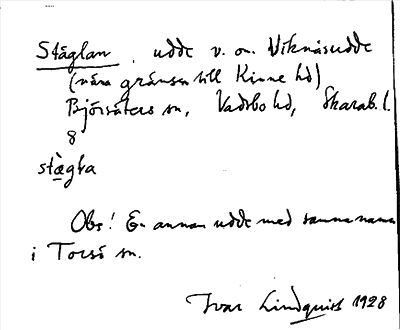 Stäglan, udde v. om Viknäsudde
(nära gränsen till Kinne hd)
Björsäters sn, Vadsbo hd, Skarab. l.
8
stæ̀gla
Obs! En annan udde med samma namn
i Torsö sn.
Ivar Lindquist 1928